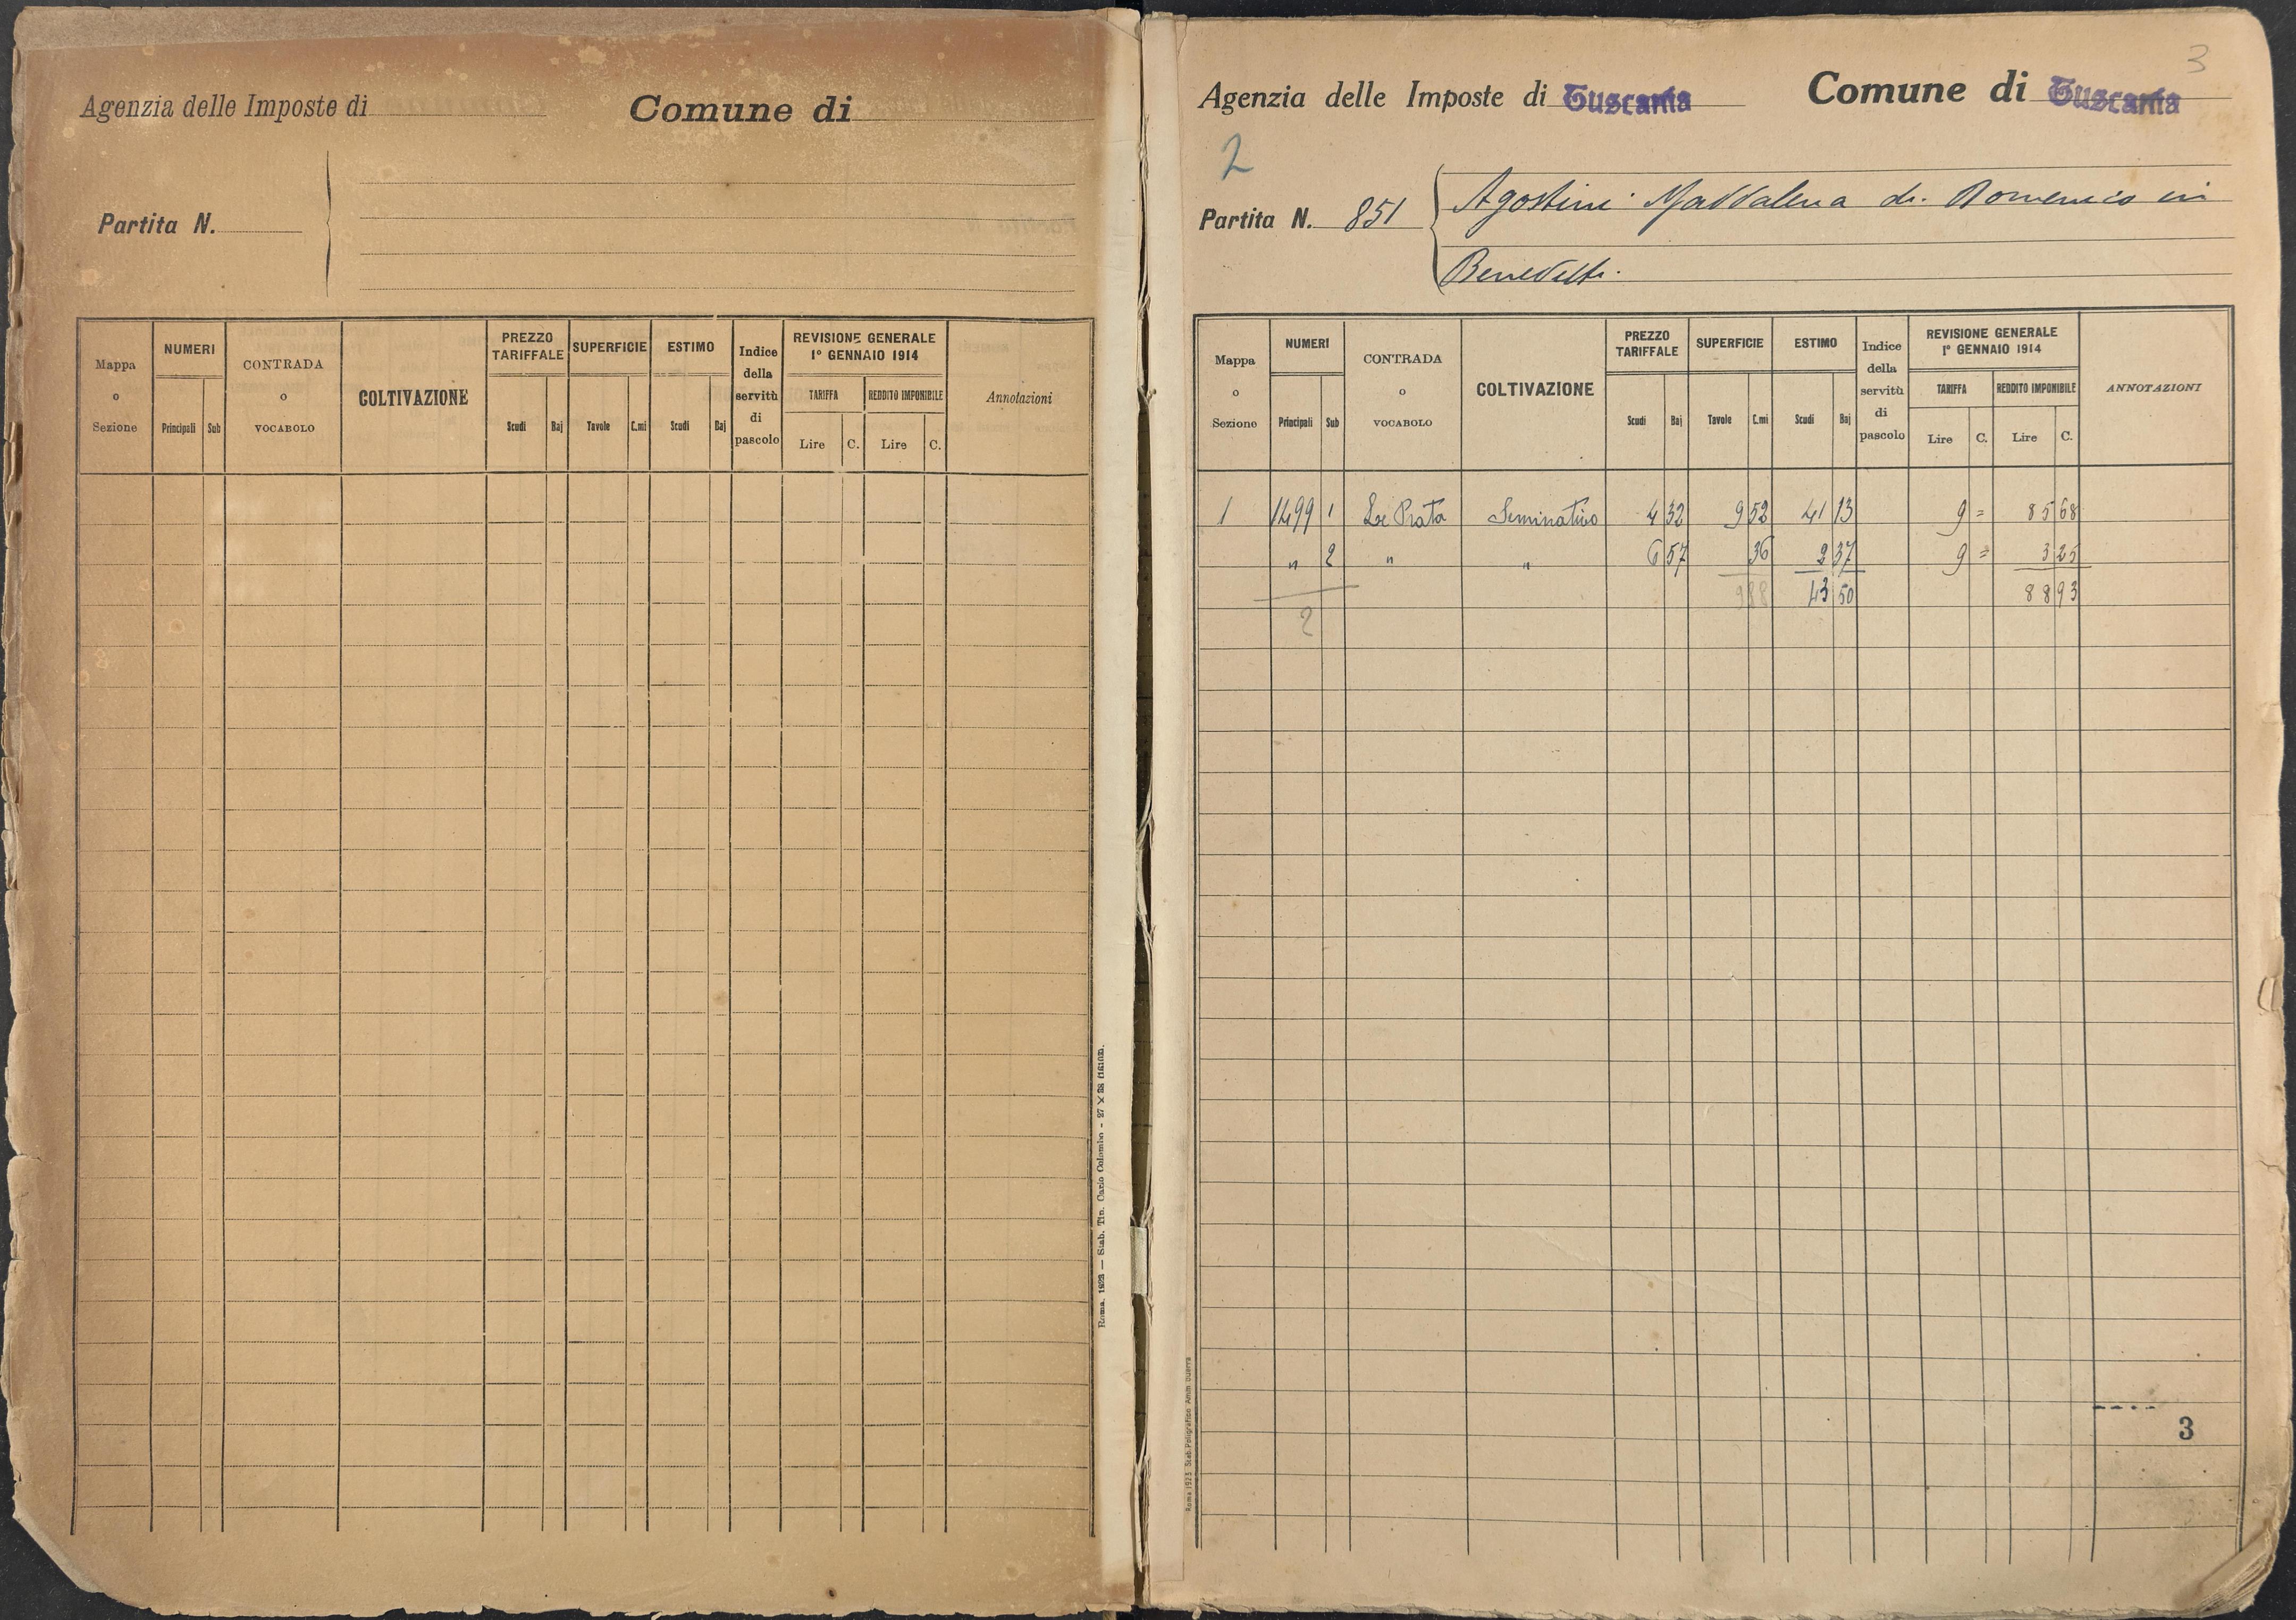 Agenzia delle Imposte di
Comune di
Partita N.
Mappa o Sezione
NUMERI
Principali Sub
CONTRADA o VOCABOLO
COLTIVAZIONE
PREZZO TARIFFALE
Scudi Baj
SUPERFICIE
Tavole C.mi
ESTIMO
Scudi Baj
Indice della servitù di pascolo
REVISIONE GENERALE
1º GENNAIO 1914
TARIFFA
Lire C.
REDDITO IMPONIBILE
Lire C.
Annotazioni
Roma, 1923 — Stab. Tip. Carlo Colombo - 27 X 38
3
Agenzia delle Imposte di Tuscania
Comune di Tuscania
2
Partita N. 851
Agostini Maddalena di Domenico in
Benedetti.
Mappa o Sezione
NUMERI
Principali Sub
CONTRADA o VOCABOLO
COLTIVAZIONE
PREZZO TARIFFALE
Scudi Baj
SUPERFICIE
Tavole C.mi
ESTIMO
Scudi Baj
Indice della servitù di pascolo
REVISIONE GENERALE
1º GENNAIO 1914
TARIFFA
Lire C.
REDDITO IMPONIBILE
Lire C.
ANNOTAZIONI
1 1499 1 Le Prata Seminativo 4 32 9 52 41 13 9 = 85 68
" 2 " " 6 57 36 2 37 9 = 3 25
9 88 43 50 88 93
2
Roma 1923 Stab. Poligrafico Amm. Guerra
3